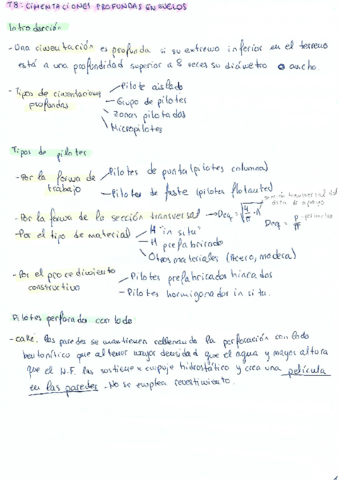 T8: CIMENTACIONES PROFUNDAS EN SUELOS
Introducción
- Una cimentación es profunda si su extremo inferior en el terreno
está a una profundidad superior a 8 veces su diámetro o ancho.
- Tipos de cimentaciones profundas
Pilote aislado
Grupo de pilotes
Zonas pilotadas
Micropilotes
Tipos de pilotes
- Por la forma de trabajo
Pilotes de punta (pilotes columna)
Pilotes de fuste (pilotes flotantes)
- Por la forma de la sección transversal → Deq =
Deq = P/π
perímetro
- Por el tipo de material
H "in situ"
H prefabricado
Otros materiales (Acero, madera)
- Por el procedimiento constructivo
Pilotes prefabricados hincados
- Pilotes hormigonados in situ.
Pilotes perforados con lodo
- Las paredes se mantienen rellenando la perforación con lodo
bentonítico que al tener mayor densidad que el agua y mayor altura
que el N.F. las sostiene x empuje hidrostático y crea una película
en las paredes. No se emplea revestimiento.